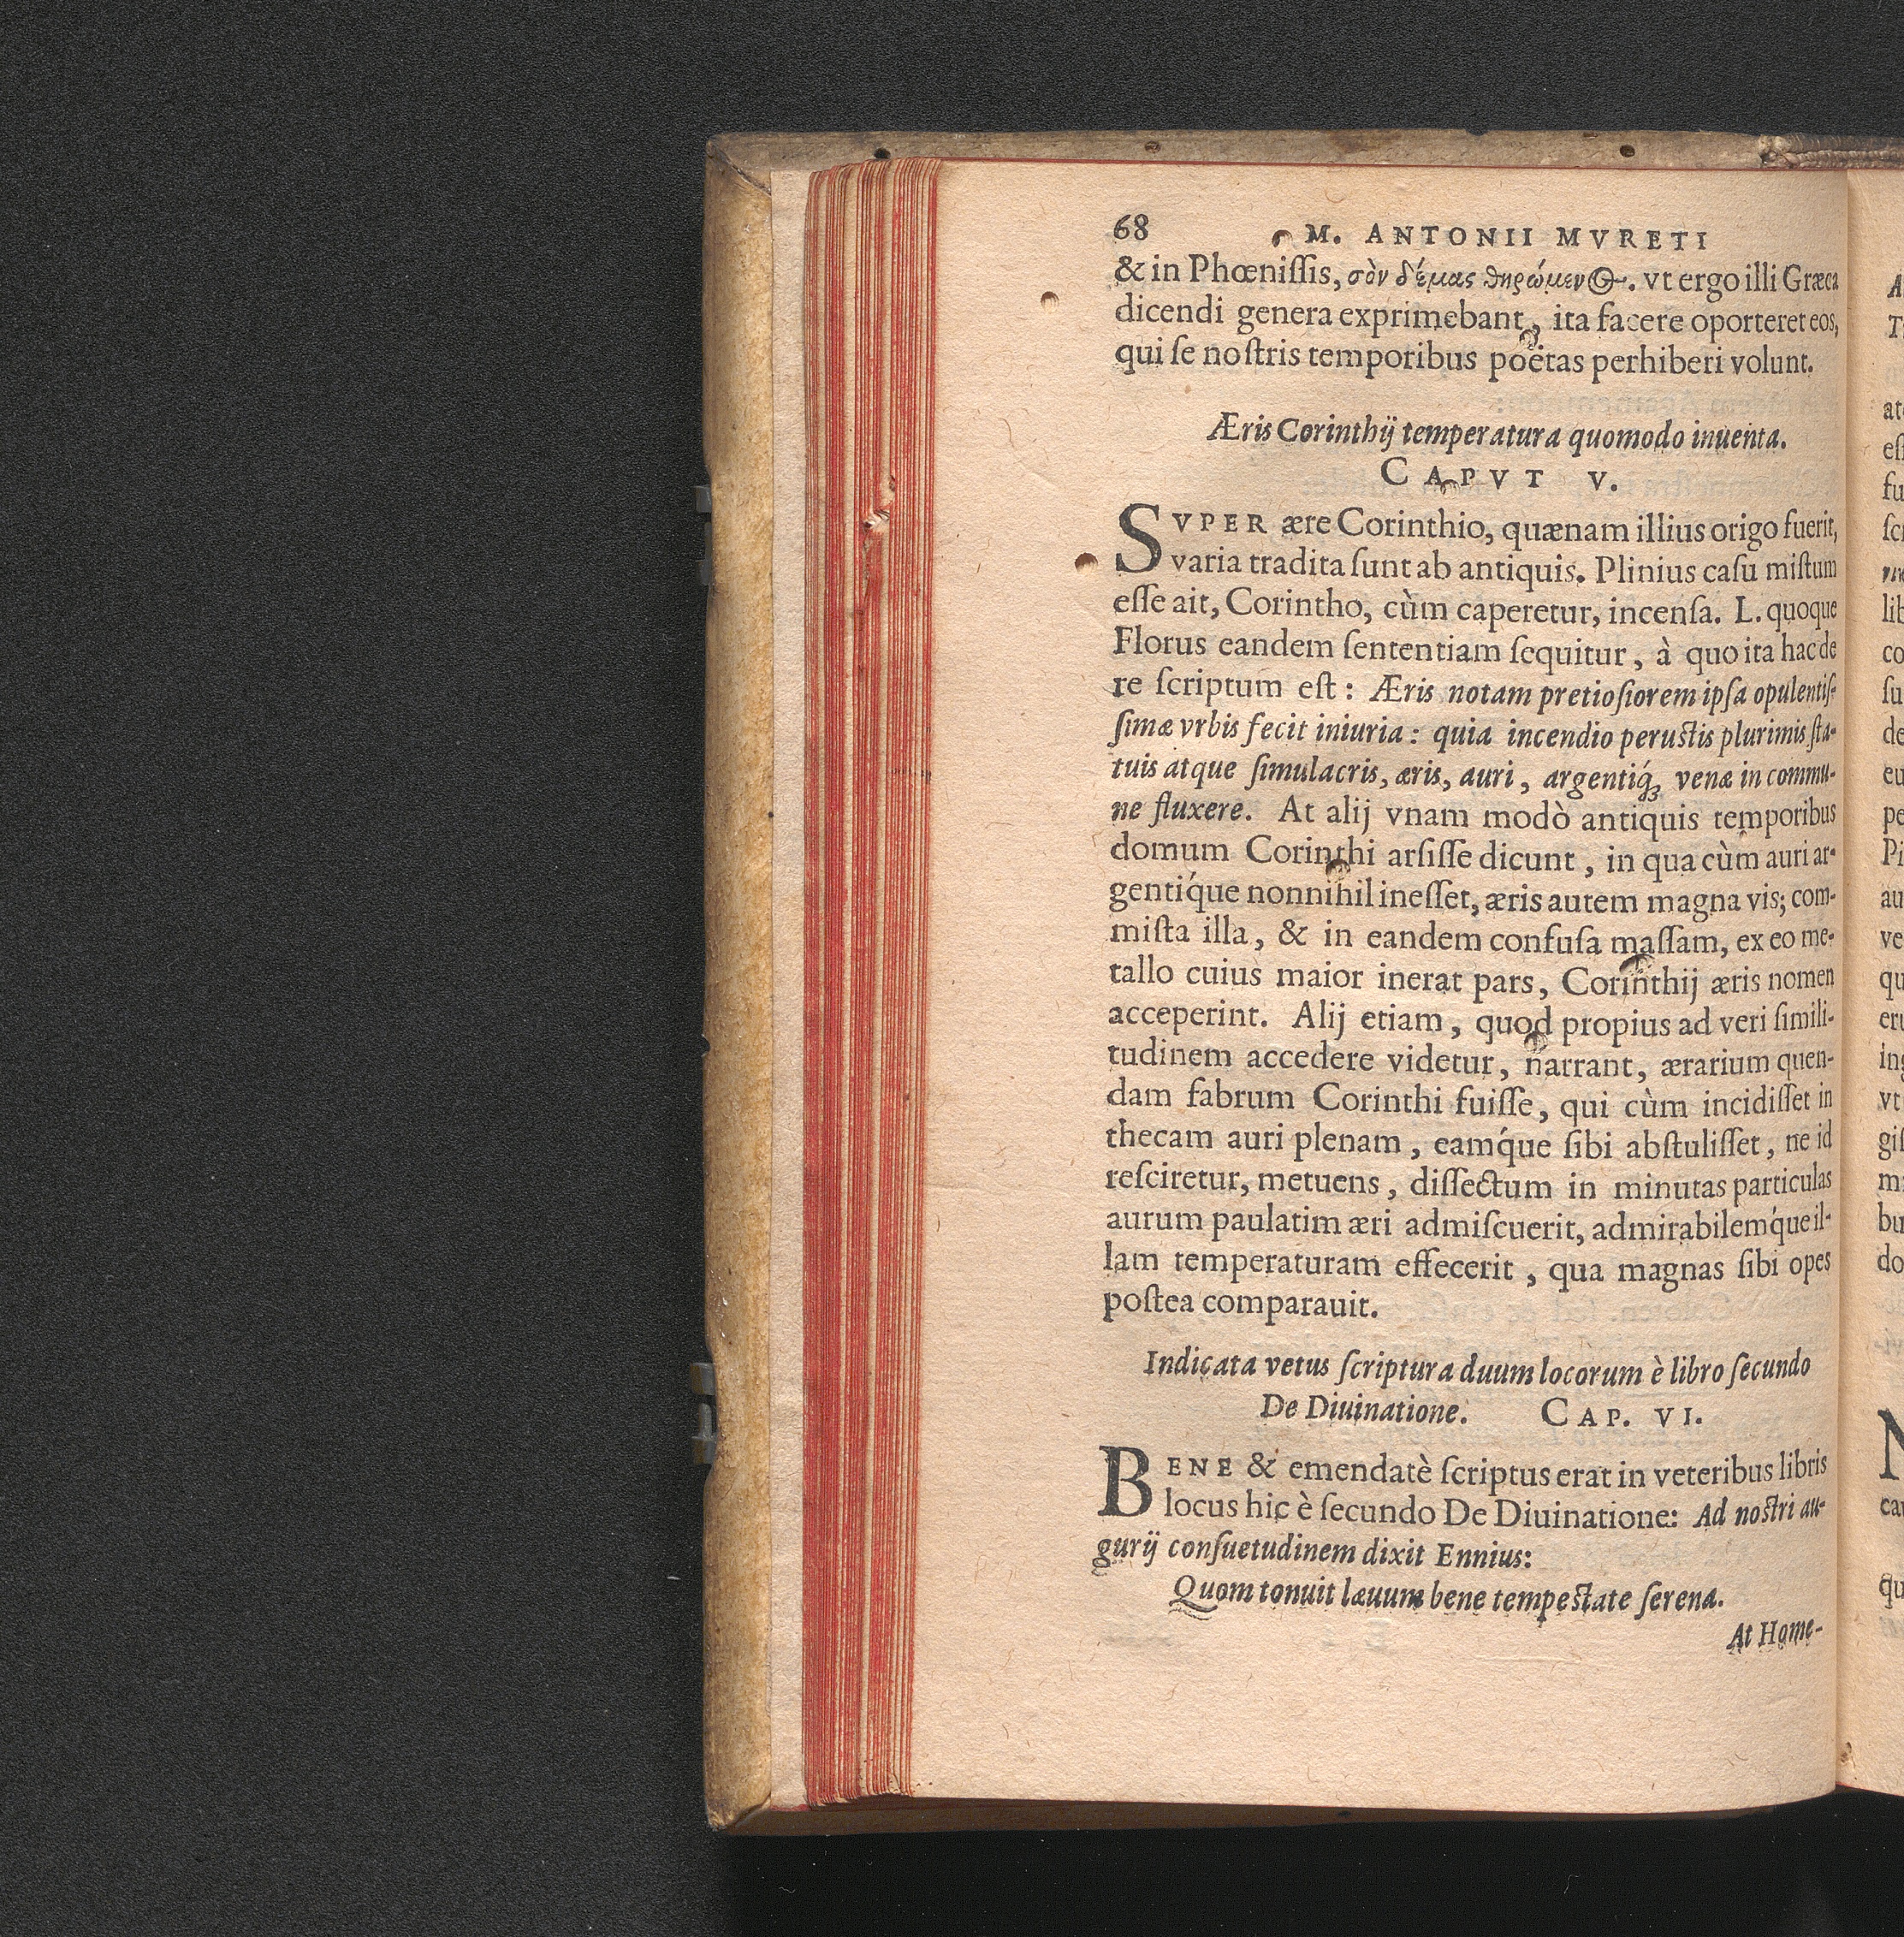 68 M. ANTONII MVRETI
& in Phœniſſis, σὸν δέμας θηρώμενος. vt ergo illi Græca
dicendi genera exprimebant, ita facere oporteret eos,
qui ſe noſtris temporibus poëtas perhiberi volunt.
Æris Corinthij temperatura quomodo inuenta.
CAPVT V.
SVPER ære Corinthio, quænam illius origo fuerit,
varia tradita ſunt ab antiquis. Plinius caſu miſtum
eſſe ait, Corintho, cùm caperetur, incenſa. L. quoque
Florus eandem ſententiam ſequitur, à quo ita hac de
re ſcriptum eſt: Æris notam pretioſiorem ipſa opulentiſ-
ſimæ vrbis fecit iniuria: quia incendio peruſtis plurimis ſta-
tuis atque ſimulacris, æris, auri, argentiq́ꝫ venæ in commu-
ne fluxere. At alij vnam modò antiquis temporibus
domum Corinthi arſiſſe dicunt, in qua cùm auri ar-
gentíque nonnihil ineſſet, æris autem magna vis; com-
miſta illa, & in eandem confuſa maſſam, ex eo me-
tallo cuius maior inerat pars, Corinthij æris nomen
acceperint. Alij etiam, quod propius ad veri ſimili-
tudinem accedere videtur, narrant, ærarium quen-
dam fabrum Corinthi fuiſſe, qui cùm incidiſſet in
thecam auri plenam, eamq́ue ſibi abſtuliſſet, ne id
reſciretur, metuens, diſſectum in minutas particulas
aurum paulatim æri admiſcuerit, admirabilemq́ue il-
lam temperaturam effecerit, qua magnas ſibi opes
poſtea comparauit.
Indicata vetus ſcriptura duum locorum è libro ſecundo
De Diuinatione. CAP. VI.
BENE & emendatè ſcriptus erat in veteribus libris
locus hic è ſecundo De Diuinatione: Ad noſtri au-
gurij conſuetudinem dixit Ennius:
Quom tonuit læuum bene tempeſtate ſerena.
At Home-